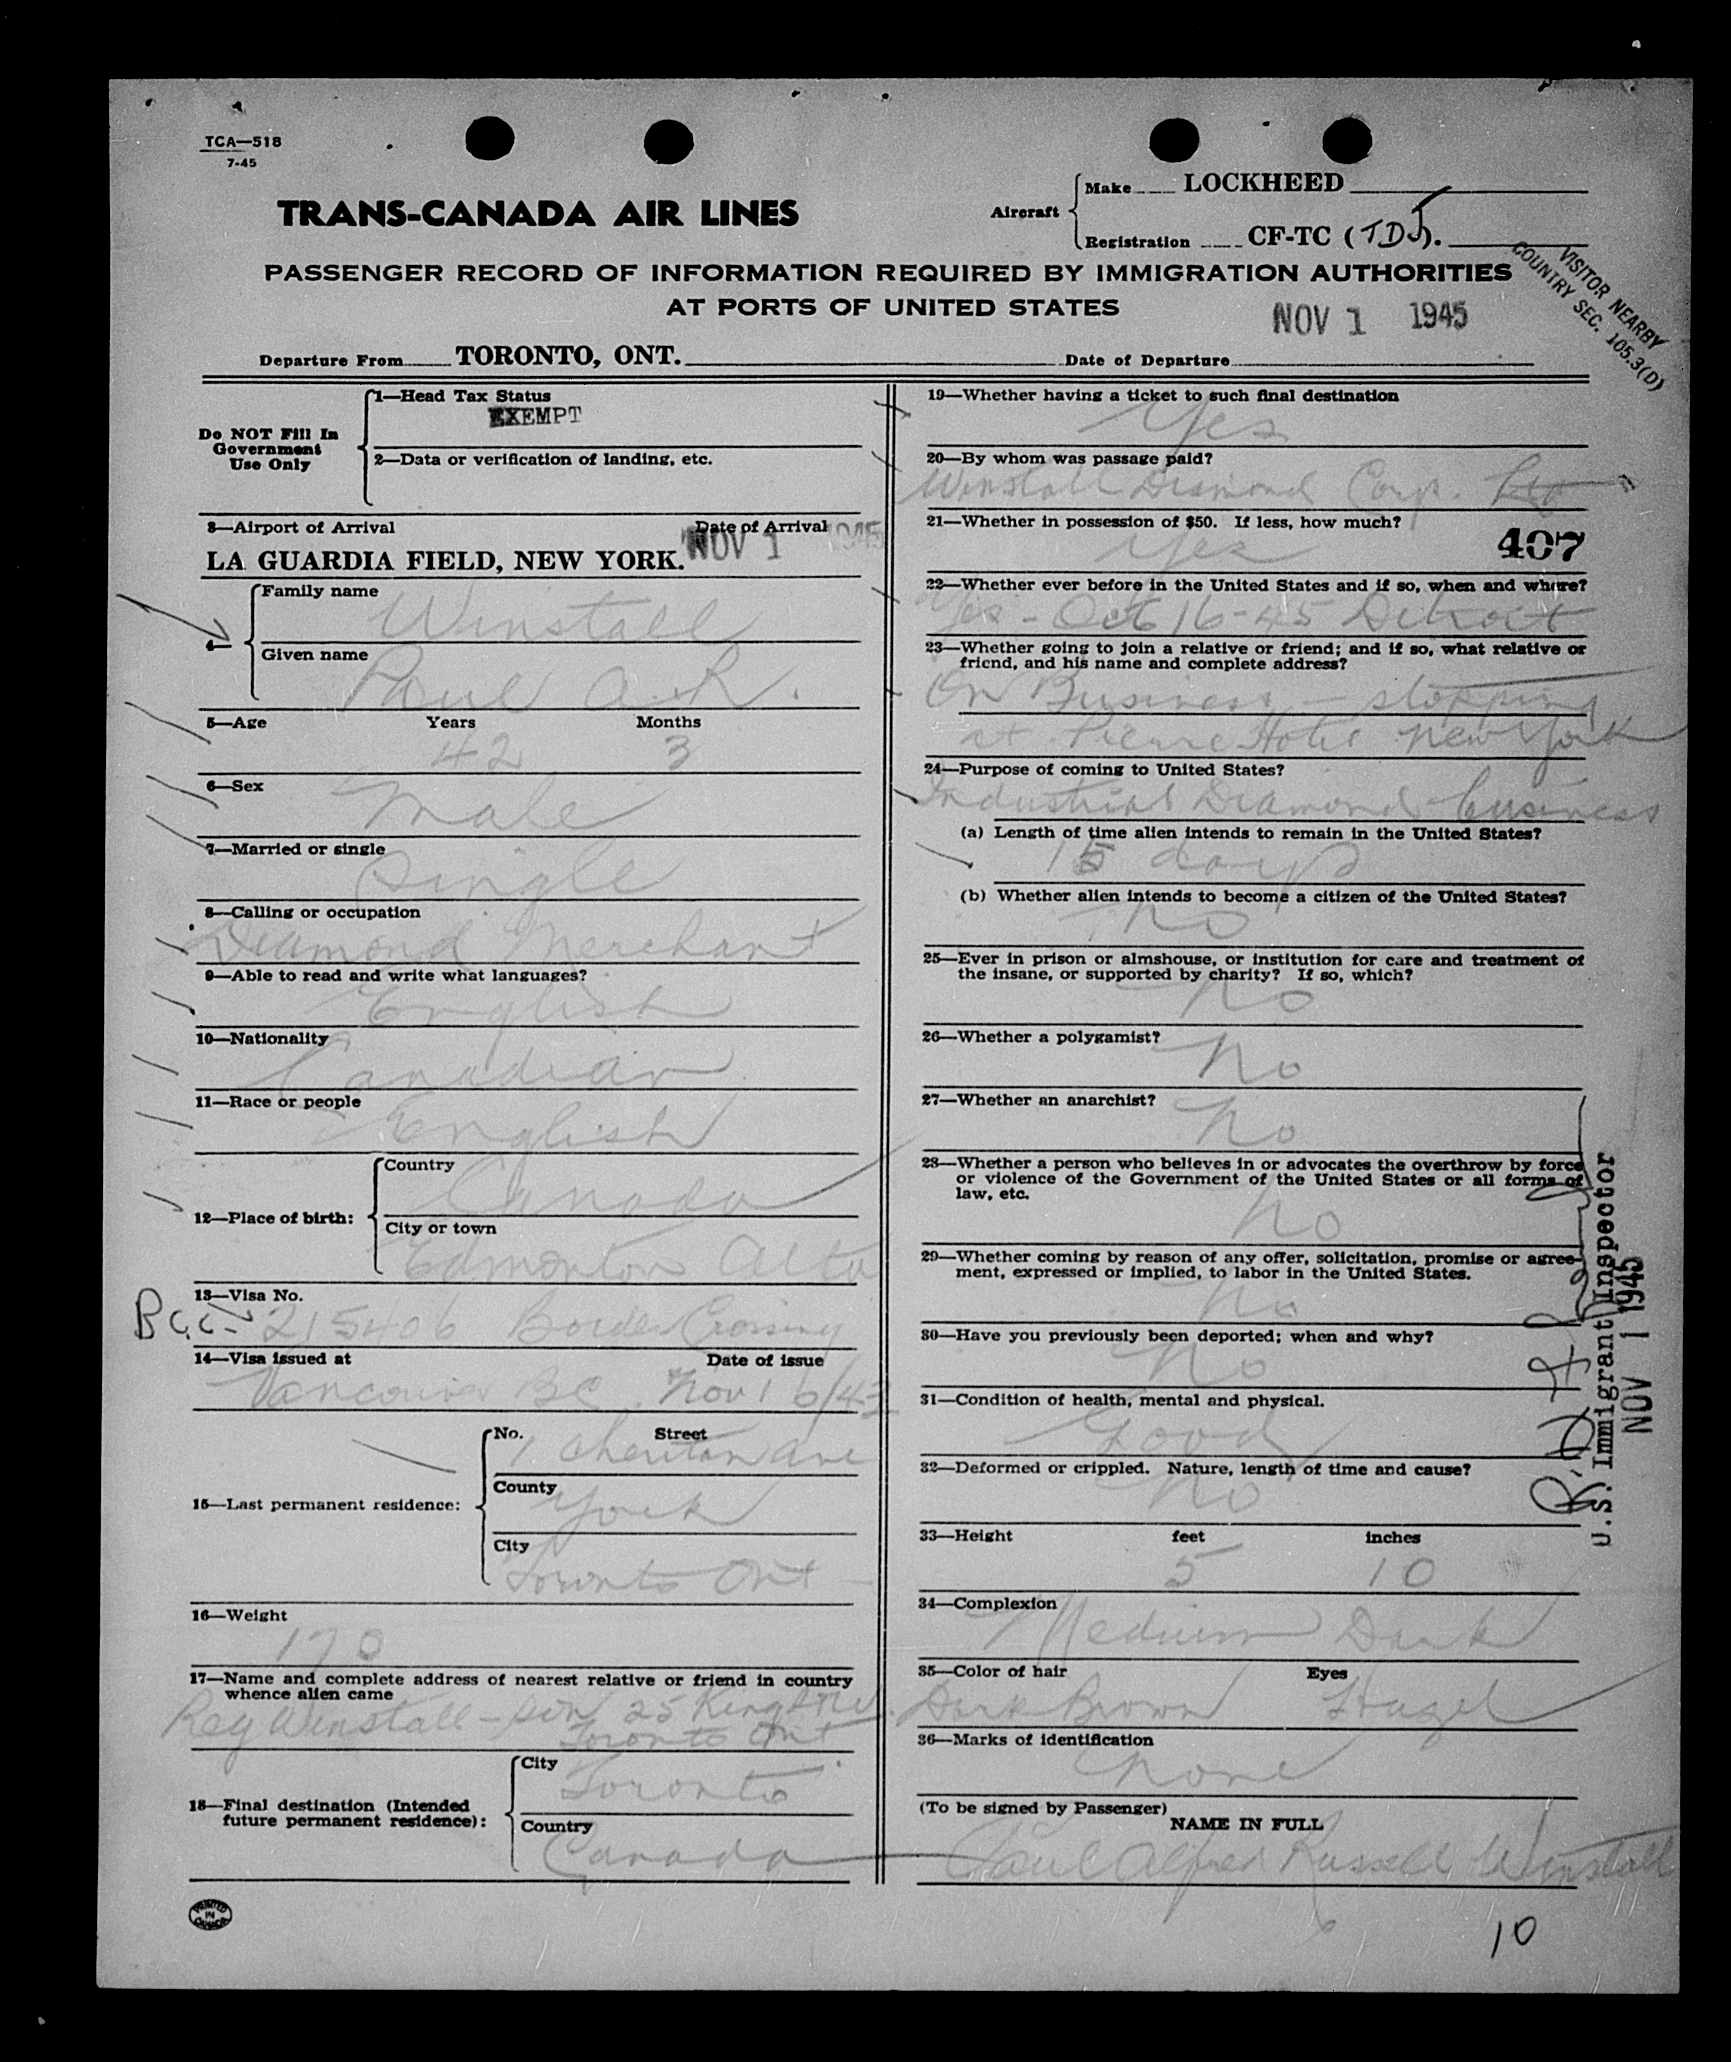 TCA—518
7-45
TRANS-CANADA AIR LINES
Aircraft
Make LOCKHEED
Registration CF-TC (TDJ).
PASSENGER RECORD OF INFORMATION REQUIRED BY IMMIGRATION AUTHORITIES
AT PORTS OF UNITED STATES
NOV 1 1945
VISITOR NEARBY
COUNTRY SEC. 105.3(D)
Departure From TORONTO, ONT. Date of Departure
Do NOT Fill In
Government
Use Only
1—Head Tax Status
EXEMPT
2—Data or verification of landing, etc.
3—Airport of Arrival Date of Arrival
LA GUARDIA FIELD, NEW YORK. NOV 1 1945
4—
Family name
Winstall
Given name
Paul A.R.
5—Age Years Months
42 3
6—Sex
Male
7—Married or single
Single
8—Calling or occupation
Diamond Merchant
9—Able to read and write what languages?
English
10—Nationality
Canadian
11—Race or people
English
12—Place of birth:
Country
Canada
City or town
Edmonton Alta
13—Visa No.
B.C.C. 215406 Border Crossing
14—Visa issued at Date of issue
Vancouver BC. Nov 16/43
15—Last permanent residence:
No. Street
1 Cheriton Ave
County
York
City
Toronto Ont
16—Weight
170
17—Name and complete address of nearest relative or friend in country
whence alien came
Reg Winstall - Son 25 King St W.
Toronto Ont
18—Final destination (Intended
future permanent residence):
City
Toronto
Country
Canada
PRINTED
IN
CANADA
19—Whether having a ticket to such final destination
Yes
20—By whom was passage paid?
Winstall Diamond Corp. Ltd
21—Whether in possession of $50. If less, how much?
Yes
407
22—Whether ever before in the United States and if so, when and where?
Yes - Oct 16-45 Detroit
23—Whether going to join a relative or friend; and if so, what relative or
friend, and his name and complete address?
On Business - stopping
at Pierre Hotel New York
24—Purpose of coming to United States?
Industrial Diamond business
(a) Length of time alien intends to remain in the United States?
15 days
(b) Whether alien intends to become a citizen of the United States?
No
25—Ever in prison or almshouse, or institution for care and treatment of
the insane, or supported by charity? If so, which?
No
26—Whether a polygamist?
No
27—Whether an anarchist?
No
28—Whether a person who believes in or advocates the overthrow by force
or violence of the Government of the United States or all forms of
law, etc.
No
29—Whether coming by reason of any offer, solicitation, promise or agree-
ment, expressed or implied, to labor in the United States.
No
30—Have you previously been deported; when and why?
No
31—Condition of health, mental and physical.
Good
32—Deformed or crippled. Nature, length of time and cause?
No
33—Height feet inches
5 10
34—Complexion
Medium Dark
35—Color of hair Eyes
Dark Brown Hazel
36—Marks of identification
None
(To be signed by Passenger)
NAME IN FULL
Paul Alfred Russell Winstall
U.S. Immigrant Inspector
NOV 1 1945
10